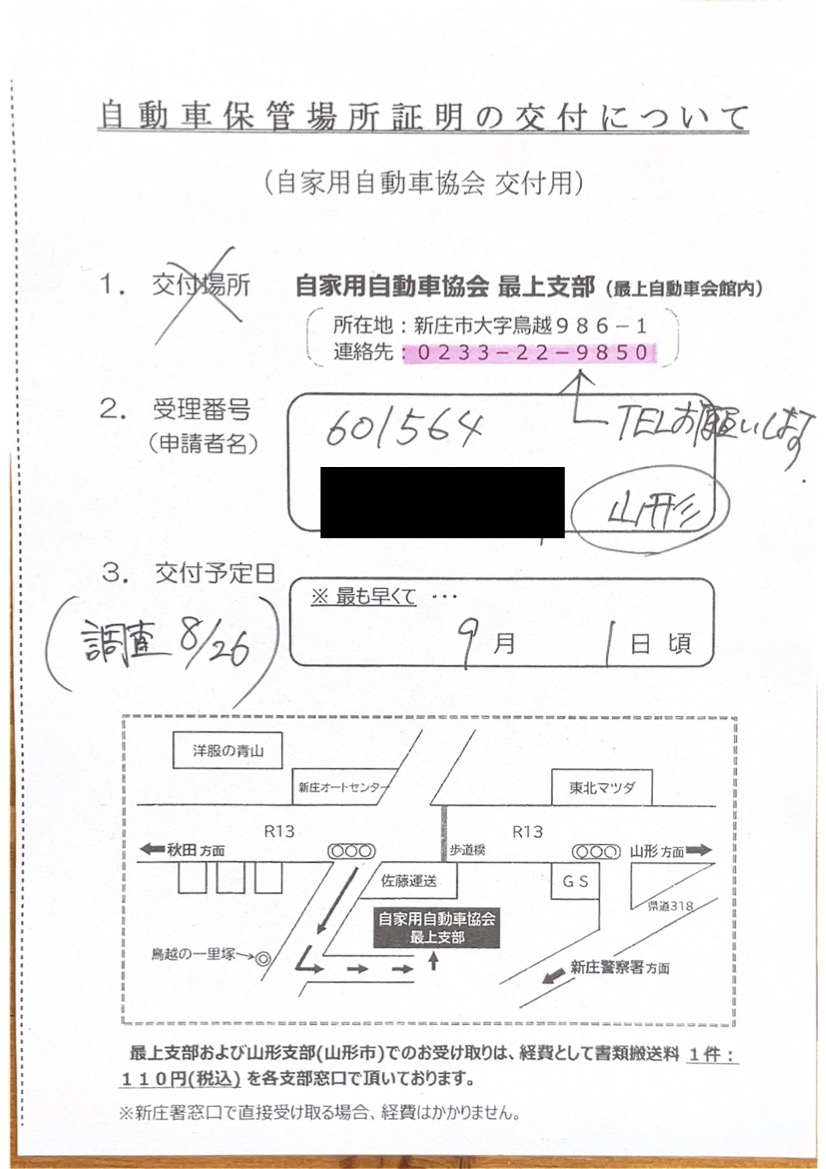 自動車保管場所証明の交付について
（自家用自動車協会 交付用）
1． 交付場所 自家用自動車協会 最上支部（最上自動車会館内）
所在地：新庄市大字鳥越９８６－１
連絡先：０２３３－２２－９８５０
2． 受理番号 601564 TELお願いします。
（申請者名）
山形
3． 交付予定日
※ 最も早くて ･･･
(調査 8/26) 9 月 1 日 頃
洋服の青山
新庄オートセンター 東北マツダ
R13 R13
秋田 方面 歩道橋 山形 方面
佐藤運送 ＧＳ
県道318
自家用自動車協会
最上支部
鳥越の一里塚
新庄警察署 方面
最上支部および山形支部(山形市)でのお受け取りは、経費として書類搬送料 １件：
１１０円(税込) を各支部窓口で頂いております。
※新庄署窓口で直接受け取る場合、経費はかかりません。